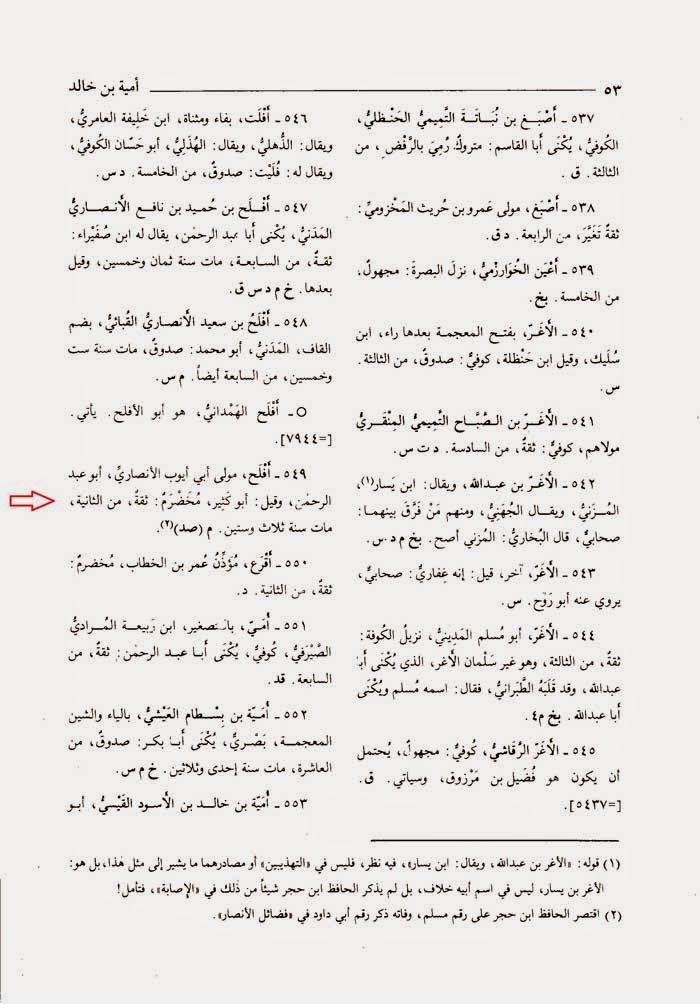 ٥٣
أمية بن خالد
٥٣٧ ـ أَصْبَغ بن نُبَاتَةَ التَّميميُّ الحَنْظليُّ،
الكُوفيُّ، يُكْنَى أبا القاسم: متروكٌ رُمِيَ بالرَّفْضِ، من
الثالثة. ق.
٥٣٨ ـ أَصْبَغ، مولى عَمرو بن حُريث المَخْزوميِّ:
ثقةٌ تَغَيَّرَ، من الرابعة. د ق.
٥٣٩ ـ أَعْيَن الخُوَارزْميُّ، نزلَ البصرةَ: مجهولٌ،
من الخامسة. بخ.
٥٤٠ ـ الأَغَرّ، بفتح المعجمة بعدها راء، ابن
سُلَيك، وقيل ابن حَنْظلة، كوفيٌّ: صدوقٌ، من الثالثة.
س.
٥٤١ ـ الأَغَرّ بن الصَّبَّاح التَّميميُّ المِنْقَريُّ
مولاهم، كوفيٌّ: ثقةٌ، من السادسة. د ت س.
٥٤٢ ـ الأَغَرّ بن عبدالله، ويقال: ابن يَسار(١)،
المُزَنيُّ، ويقال الجُهَنيُّ، ومنهم مَنْ فَرَّقَ بينهما:
صحابيٌّ، قال البُخاريُّ: المُزني أصح. بخ م د س.
٥٤٣ ـ الأَغَرّ، آخر، قيل: إنه غِفاريٌّ: صحابيٌّ،
يروي عنه أبو رَوْح. س.
٥٤٤ ـ الأَغَرّ، أبو مُسلم المَدِينيُّ، نزيلُ الكوفة:
ثقةٌ، من الثالثة، وهو غير سَلْمان الأغر، الذي يُكْنَى أبا
عبدالله، وقد قَلَبَهُ الطَّبَرانيُّ، فقال: اسمه مُسلم ويُكْنَى
أبا عبدالله. بخ م٤.
٥٤٥ ـ الأَغَرّ الرَّقاشيُّ، كُوفيٌّ: مجهولٌ، يُحتمل
أن يكون هو فُضَيل بن مَرْزوق، وسيأتي. ق.
[=٥٤٣٧].
٥٤٦ ـ أَفْلَت، بفاء ومثناة، ابن خَلِيفة العامريُّ،
ويقال: الذُّهليُّ، ويقال: الهُذَلِيُّ، أبو حَسَّان الكُوفيُّ،
ويقال له: فُلَيْت: صدوقٌ، من الخامسة. د س.
٥٤٧ ـ أَفْلَح بن حُميد بن نافع الأَنصاريُّ
المَدَنيُّ، يُكْنى أبا عبد الرحمٰن، يقال له ابن صُفَيْراء:
ثقةٌ، من السابعة، مات سنة ثمان وخمسين، وقيل
بعدها. خ م د س ق.
٥٤٨ ـ أَفْلَحُ بن سعيد الأَنصاريُّ القُبائيُّ، بضم
القاف، المَدَنيُّ، أبو محمد: صدوقٌ، مات سنة ست
وخمسين، من السابعة أيضاً. م س.
○ ـ أَفْلَح الهَمْدانيُّ، هو أبو الأفلح. يأتي.
[=٧٩٤٤].
٥٤٩ ـ أَفْلَح، مولى أبي أيوب الأنصاريِّ، أبو عبد
الرحمٰن، وقيل: أبو كَثِير، مُخَضْرَمٌ: ثقةٌ، من الثانية،
مات سنة ثلاث وستين. م (صد)(٢).
٥٥٠ ـ أَقْرَع، مُؤَذِّنُ عُمر بن الخطاب، مُخضرمٌ:
ثقةٌ، من الثانية. د.
٥٥١ ـ أُمَيّ، بالتصغير، ابن رَبيعة المُراديُّ
الصَّيْرَفيُّ، كُوفيٌّ، يُكْنَى أبا عبد الرحمٰن: ثقةٌ، من
السابعة. قد.
٥٥٢ ـ أُمَيّة بن بِسْطام العَيْشيُّ، بالياء والشين
المعجمة، بَصْريٌّ، يُكْنَى أبا بكر: صدوقٌ، من
العاشرة، مات سنة إحدى وثلاثين. خ م س.
٥٥٣ ـ أُمَيّة بن خالد بن الأسود القَيْسيُّ، أبو
(١) قوله: «الأغر بن عبدالله، ويقال: ابن يسار»، فيه نظر، فليس في «التهذيبين» أو مصادرهما ما يشير إلى مثل هذا، بل هو:
الأغر بن يسار، ليس في اسم أبيه خلاف، بل لم يذكر الحافظ ابن حجر شيئاً من ذلك في «الإصابة»، فتأمل!
(٢) اقتصر الحافظ ابن حجر على رقم مسلم، وفاته ذكر رقم أبي داود في «فضائل الأنصار».